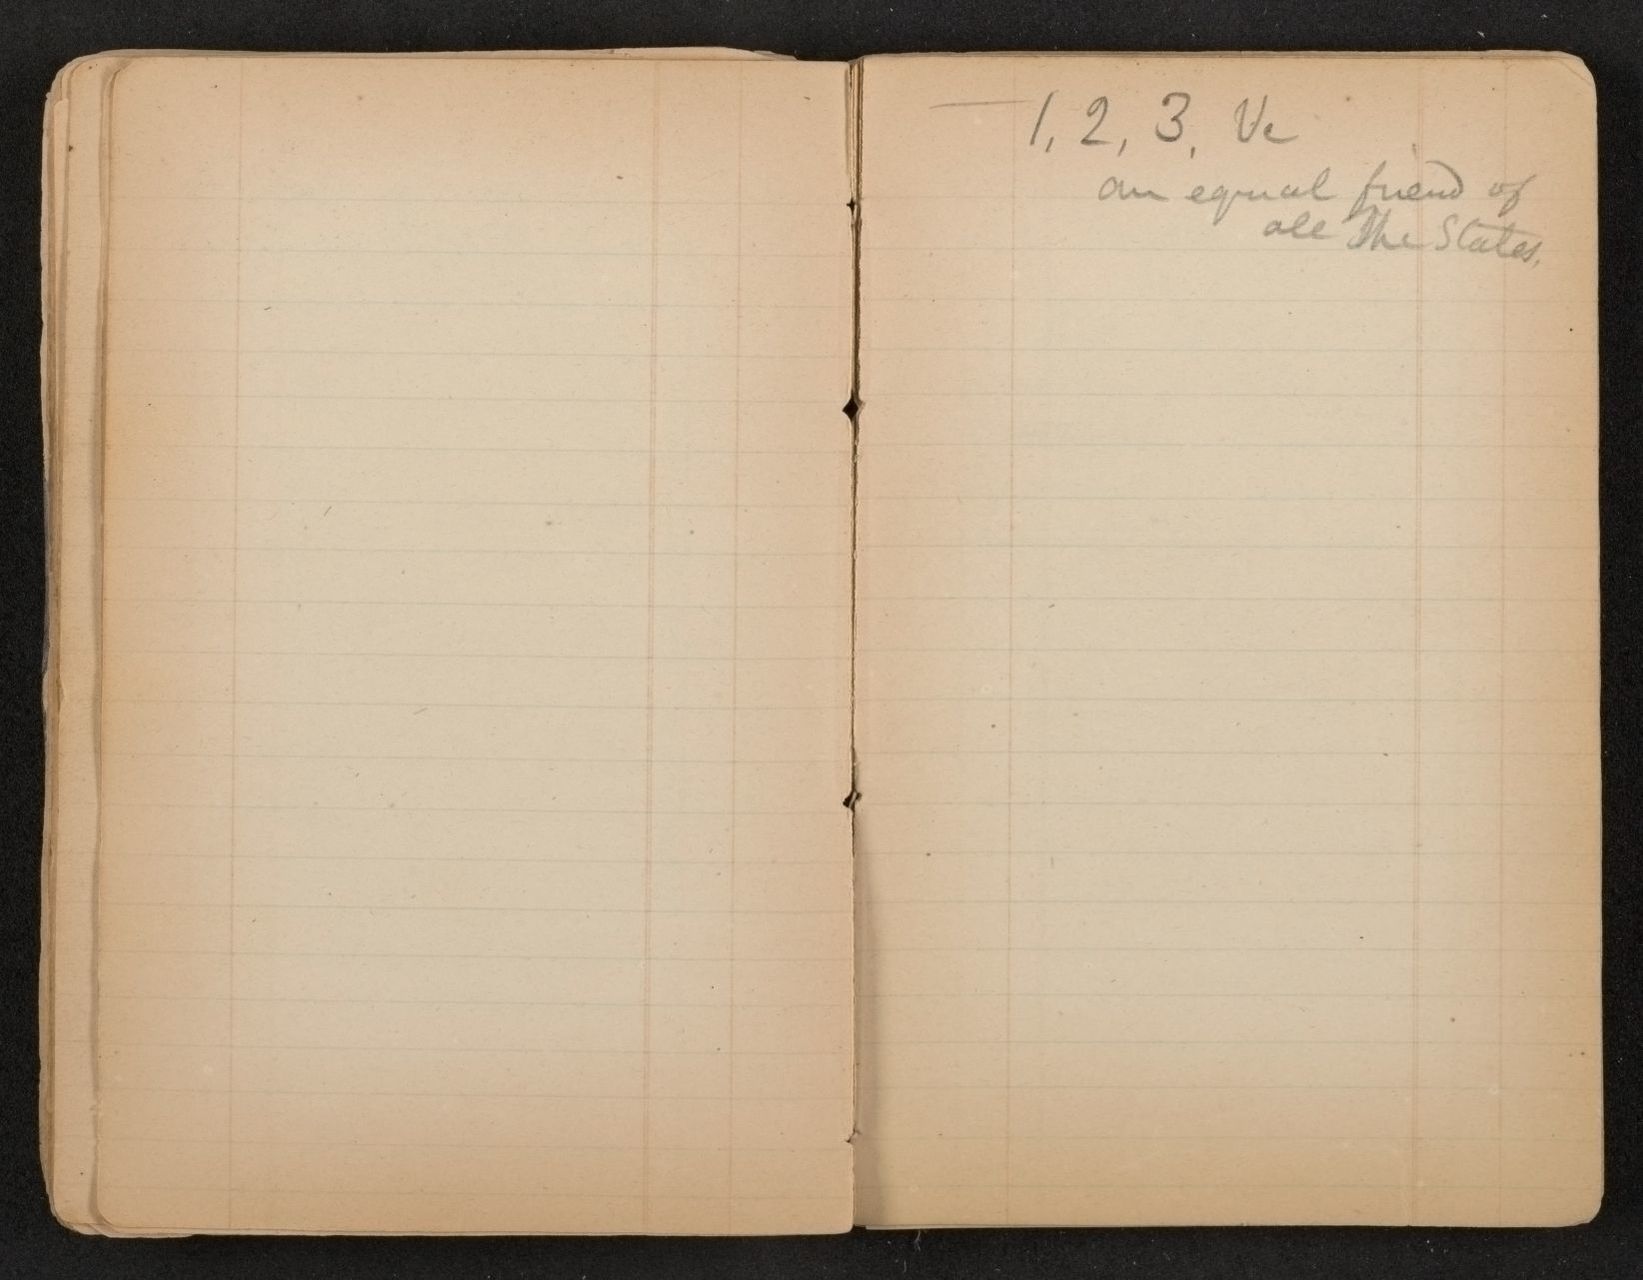 — 1, 2, 3, &c
an equal friend of
all The States.